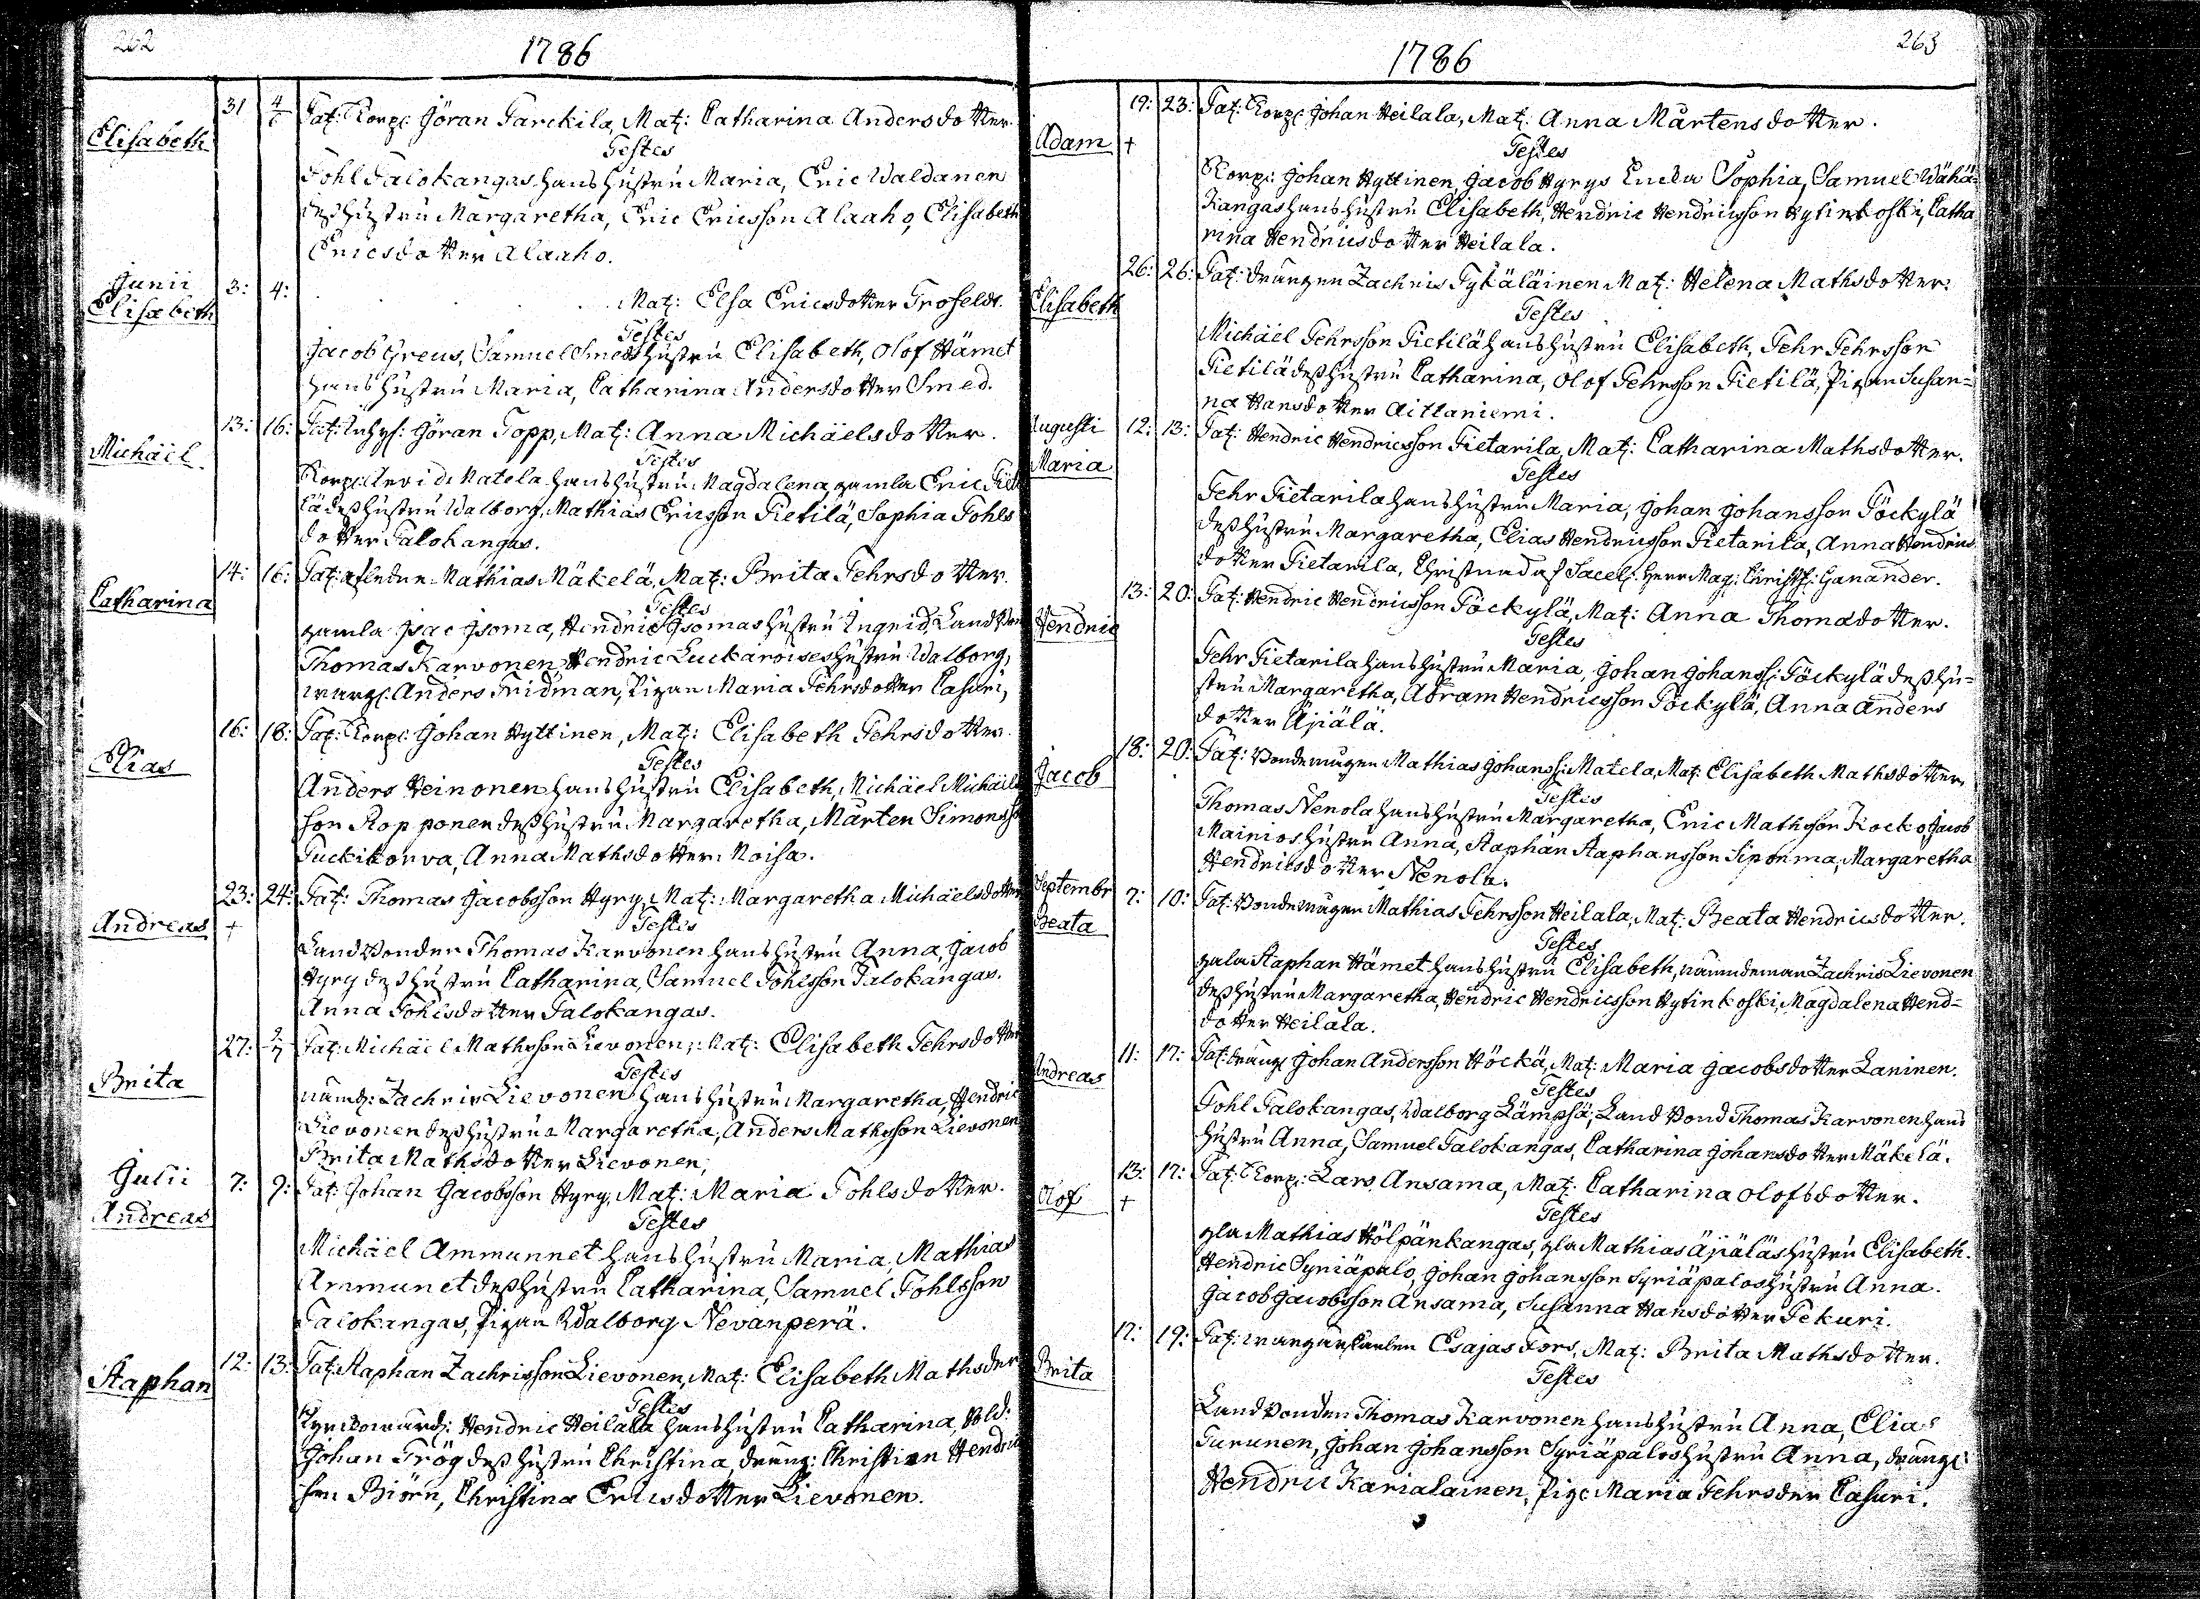 262
1786
Elisabeth
31 4/6 Pat: Korp: Göran Parckila, Mat: Catharina Andersdotter.
Testes
Pohl Palokangas hans hustru Maria, Eric Waldanen
dess hustru Margaretha, Eric Ericsson Alaaho, Elisabeth
Ericsdotter Alaaho.
Junii
Elisabeth
3: 4: Mat: Elsa Ericsdotter Trofeldt.
Testes
Jacob Greus, Samuel Smeds hustru Elisabeth, Olof Hämet
hans hustru Maria, Catharina Andersdotter Smed.
Michäel
13: 16: Pat: Inhys: Göran Topp, Mat: Anna Michäelsdotter.
Testes
Korp: Matela hans hustru Magdalena, gamla Eric
lä dess hustru Walborg, Mathias Ericsson Pietilä, Sophia Pohls
dotter Palokangas.
Catharina
14: 16: Pat: afledne Mathias Mäkelä, Mat: Brita Pehrsdotter.
Testes
gamla Isac Isoma, Hendric Isomas hustru Ingrid, Land
Thomas Karvonen, Hendric Luckaroises hustru Walborg,
Anders Fridman, Pigan Maria Pehrsdotter Casuri,
Elias
16: 18: Pat: Korp: Johan Hyttinen, Mat: Elisabeth Pehrsdotter.
Testes
Anders Heinonen hans hustru Elisabeth, Michäel Michäels
son Ropponen dess hustru Margaretha, Mårten Simonsson
Puckikorva, Anna Mathsdotter Moisa.
Andreas
†
23: 24: Pat: Thomas Jacobsson Hyry, Mat: Margaretha Michäelsdotter
Testes
Landbonden Thomas Karvonen hans hustru Anna, Jacob
Hyry dess hustru Catharina, Samuel Pohlsson Palokangas.
Anna Pohlsdotter Palokangas.
Brita
27: 2/7 Pat: Michäel Mathsson Lievonen, Mat: Elisabeth Pehrsdotter
Testes
nämd: Zachris Lievonen hans hustru Margaretha, Hendric
Lievonen dess hustru Margaretha, Anders Mathsson Lievonen
Brita Mathsdotter Lievonen,
Julii
Andreas
7: 9: Pat: Johan Jacobsson Hyry, Mat: Maria Pohlsdotter.
Testes
Michäel Ammunnet hans hustru Maria, Mathias
Ammunet dess hustru Catharina, Samuel Pohlsson
Palokangas, Pigan Walborg Nevanperä.
Staphan
12: 13: Pat: Staphan Zachrisson Lievonen, Mat: Elisabeth Mathsder
Testes
Kyrckowärd: Hendric Heilala hans hustru Catharina, Sold:
Johan Trög dess hustru Christina, dräng: Christian Hendric
son Biörn, Christina Ericsdotter Lievonen.
263
1786
Adam
†
19: 23: Pat: Korp: Johan Heilala, Mat: Anna Mårtensdotter.
Testes
Korp: Johan Hyttinen, Jacob Hyrys Encka Sophia, Samuel Wähä-
Kangas hans hustru Elisabeth, Hendric Hendricsson Hytinkoski, Catha
rina Hendricsdotter Heilala.
Elisabeth
26: 26: Pat: drängen Zachris Tykäläinen Mat: Helena Mathsdotter.
Testes
Michäel Pehrsson Pietilä hans hustru Elisabeth, Pehr Pehrsson
Pietilä dess hustru Catharina, Olof Pehrsson Pietilä, Pigan Susan-
na Hansdotter Aittaniemi.
Augusti
Maria
12: 13: Pat: Hendric Hendricsson Pietarila, Mat: Catharina Mathsdotter.
Testes
Pehr Pietarila hans hustru Maria, Johan Johansson Pöckylä
dess hustru Margaretha, Elias Hendricsson Pietarila, Anna Hendrics
dotter Pietarila, Christnad af Sacell: Herr Mag: Christf: Ganander.
Hendric
13: 20: Pat: Hendric Hendricsson Pöckylä, Mat: Anna Thomadotter.
Testes
Pehr Pietarila hans hustru Maria, Johan Johanss: Pöckylä dess hu-
stru Margaretha, Abram Hendricsson Pöckylä, Anna Anders
dotter Äjälä.
Jacob
18: 20: Pat: Bondemågen Mathias Johanss: Matela, Mat: Elisabeth Mathsdotter,
Testes
Thomas Nenola hans hustru Margaretha, Eric Mathsson Kocko, Jacob
Mainios hustru Anna, Staphan Staphansson Siponma, Margaretha
Hendricsdotter Nenola.
Septembr
Beata
7: 10: Pat: Bondemågen Mathias Pehrsson Heilala, Mat: Beata Hendricsdotter.
Testes
gala Staphan Hämet hans hustru Elisabeth, nämndeman Zachris Lievonen
dess hustru Margaretha, Hendric Hendricsson Hytinkoski, Magdalena Hend-
dotter Heilala.
Andreas
11: 17: Pat: dräng Johan Andersson Höckä, Mat: Maria Jacobsdotter Laninen.
Testes
Pohl Palokangas, Walborg Lämpsä, Landbond Thomas Karvonen hans
hustru Anna, Samuel Palokangas, Catharina Johansdotter Mäkelä.
Olof
†
13: 17: Pat: Korp: Lars Ansama, Mat: Catharina Olofsdotter.
Testes
gla Mathias Hölpänkangas, gla Mathias Äjäläs hustru Elisabeth.
Hendric Syriäpalo, Johan Johansson Syriäpalos hustru Anna.
Jacob Jacobsson Ansama, Susanna Hansdotter Pekuri.
Brita
17: 19: Pat: Esajas Fors, Mat: Brita Mathsdotter.
Testes
Landbonden Thomas Karvonen hans hustru Anna, Elias
Turunen, Johan Johansson Syriäpalos hustru Anna, dräng:
Hendric Karialainen, Pig: Maria Pehrsder Casuri.